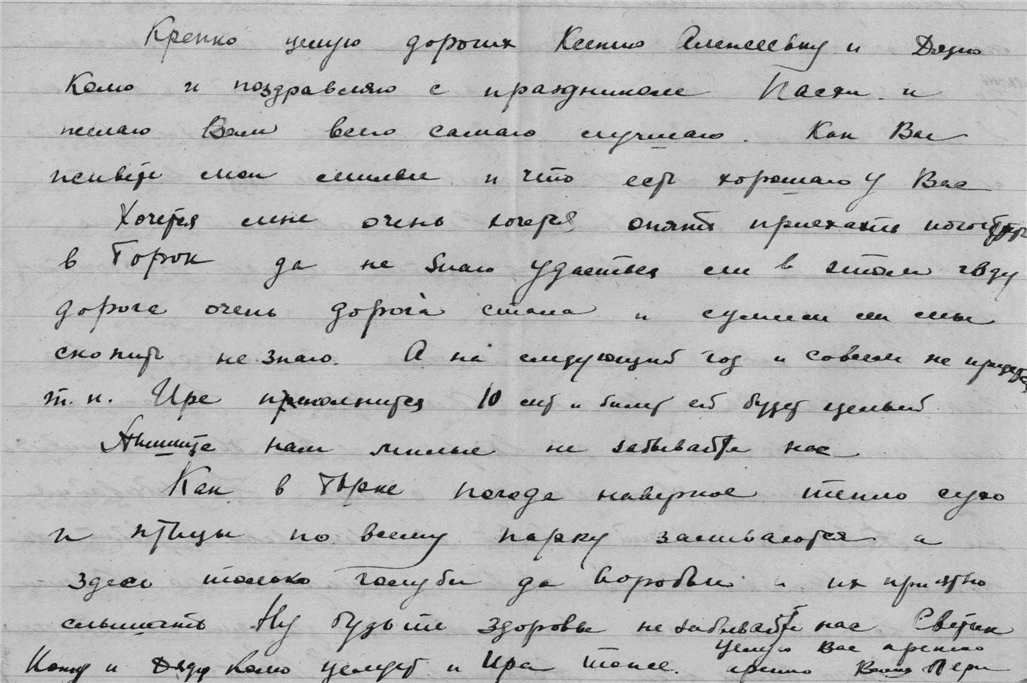 Крепко целую дорогих Ксению Алексеевну и Дядю
Колю и поздравляю с праздником Пасхи и
желаю Вам всего самого лучшего. Как Вы
живёте мои милые и что есть хорошего у Вас
Хочется мне очень хочется опять приехать
в Торок да не знаю удастся ли в этом году
дорога очень дорога стала и сумеем ли мы
скопить не знаю. А на следующий год и совсем не
т.н. Ире исполнится 10 лет и билет ей будет целый
Пишите нам милые не забывайте нас
Как в Торке погода наверное тепло сухо
и птицы по всему парку заливаются а
здесь только голуби да воробьи и их приятно
слышать Ну будьте здоровы не забывайте нас Светик
и Дядю Колю целует и Ира тоже. Целую Вас крепко
крепко Ваша